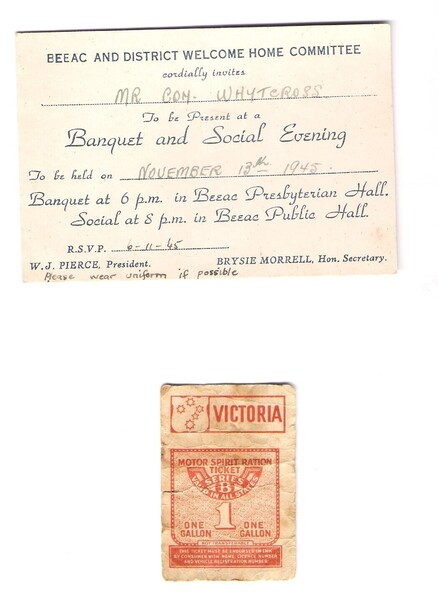 BEEAC AND DISTRICT WELCOME HOME COMMITTEE
cordially invites
MR WHYTCROSS
To be Present at a
Banquet and Social Evening
To be held on NOVEMBER 13th 1945.
Banquet at 6 p.m. in Beeac Presbyterian Hall.
Social at 8 p.m. in Beeac Public Hall.
R.S.V.P. 6-11-45
W. J. PIERCE, President. BRYSIE MORRELL, Hon. Secretary.
Please wear uniform if possible
VICTORIA
MOTOR SPIRIT RATION
TICKET
SERIES
B
VALID IN ALL STATES
1
ONE GALLON ONE GALLON
NOT TRANSFERABLE
THIS TICKET MUST BE ENDORSED IN INK
BY CONSUMER WITH NAME, LICENCE NUMBER
AND VEHICLE REGISTRATION NUMBER